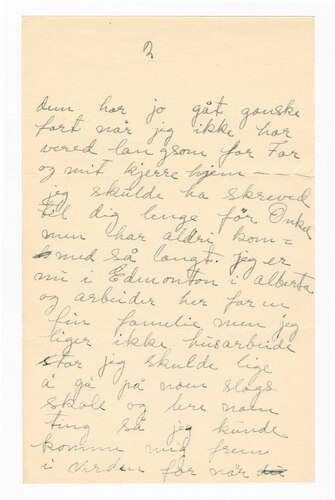 2
dem har jo gåt ganske
fort når jeg ikke har
vered langsom for Far
og mit kjerre hjem — — —
jeg skulde ha skreved
til dig lenge før Onkel
men har aldri kom=
med så langt. jeg er
nu i Edmonton i Alberta
og arbeider her for en
fin familie men jeg
liger ikke husarbeide
jeg skulde lige
å gå på noen slags
skole og lere noen
ting så jeg kunde
komme mig frem
i verden for når